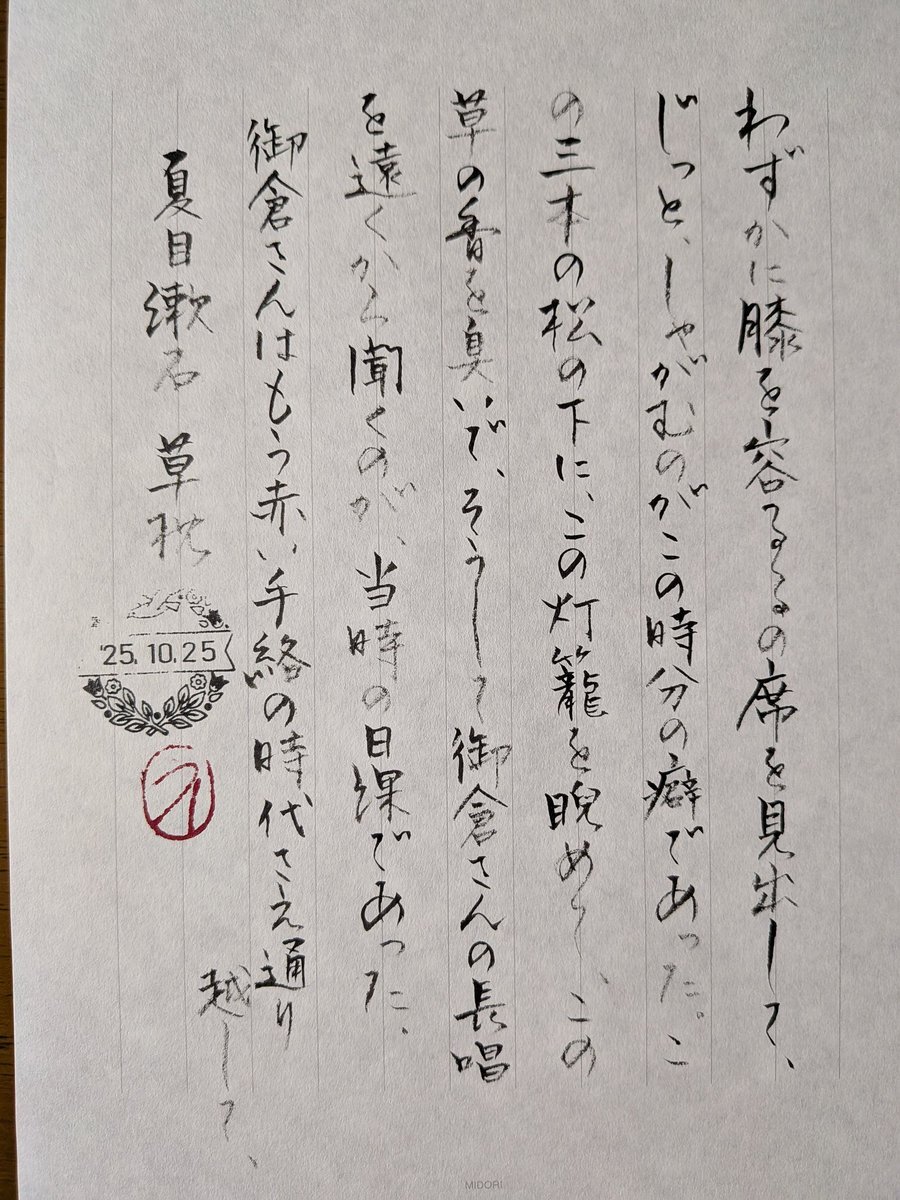 わずかに膝を容るるの席を見出して、
じっと、しゃがむのがこの時分の癖であった。こ
の三本の松の下に、この灯籠を睨めて、この
草の香を臭いで、そうして御倉さんの長唄
を遠くから聞くのが、当時の日課であった、
御倉さんはもう赤い手絡の時代さえ通り
越して、
夏目漱石 草枕
'25.10.25
MIDORI